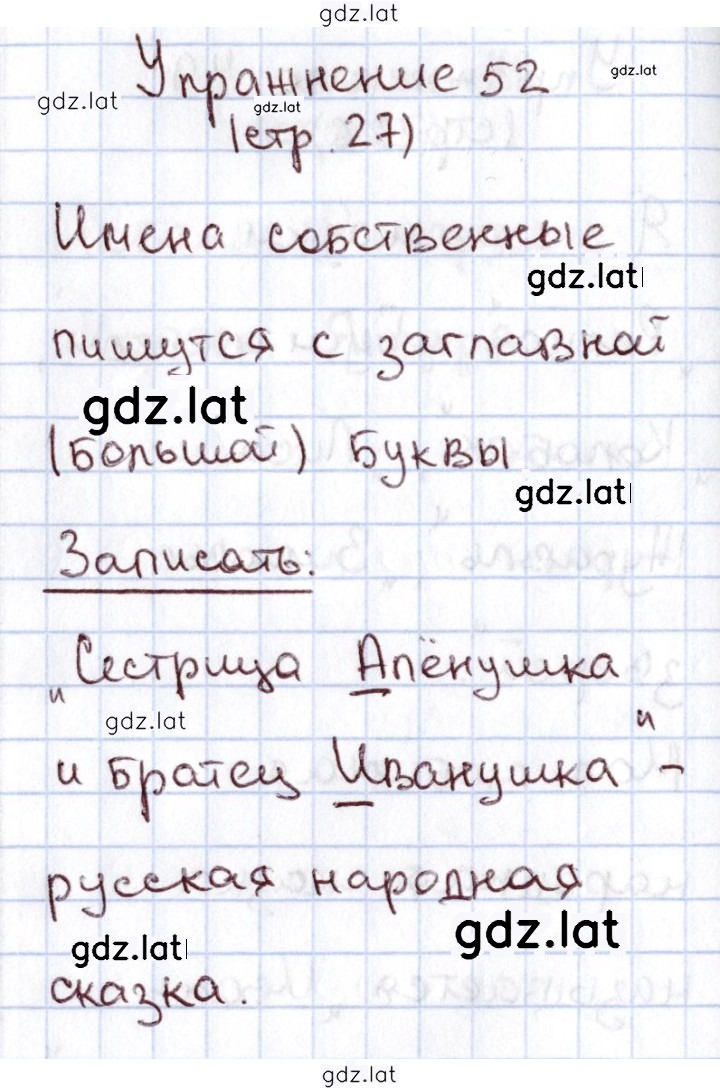 gdz.lat
Упражнение 52
gdz.lat
gdz.lat
gdz.lat
(стр. 27)
Имена собственные
gdz.lat
пишутся с заглавной
gdz.lat
(большой) буквы
gdz.lat
Записать:
„Сестрица Алёнушка
gdz.lat
и братец Иванушка" –
русская народная
gdz.lat
gdz.lat
сказка.
gdz.lat